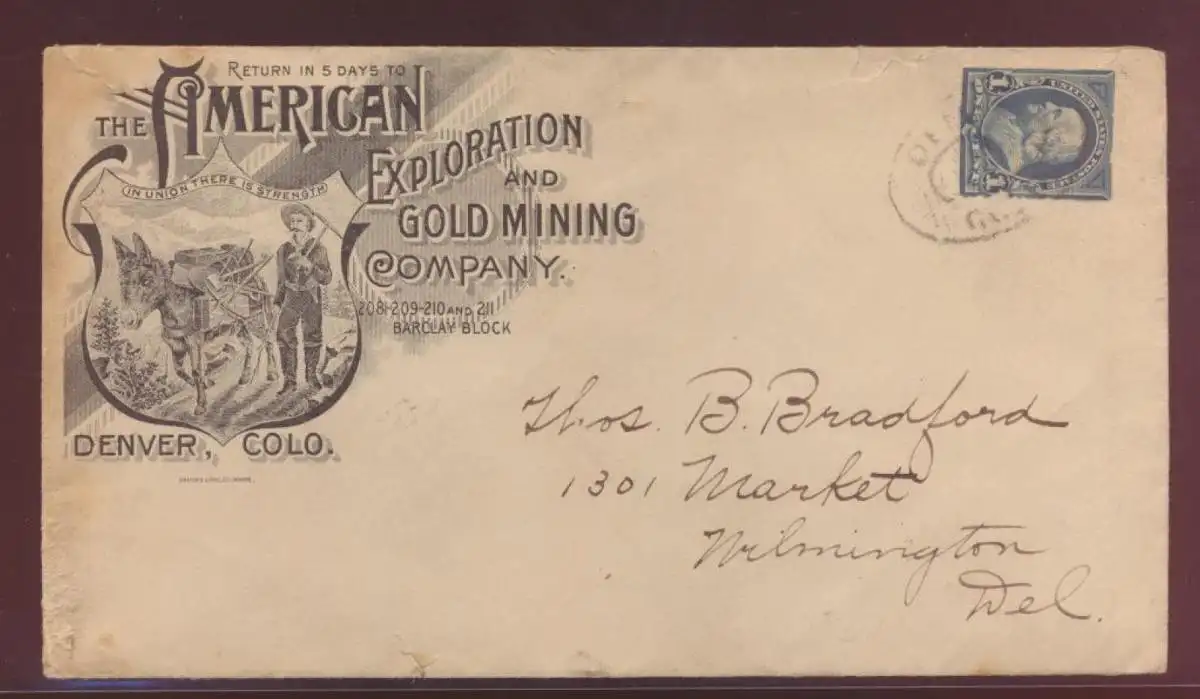 RETURN IN 5 DAYS TO
THE AMERICAN
EXPLORATION
AND
GOLD MINING
COMPANY.
208-209-210 AND 211
BARCLAY BLOCK
IN UNION THERE IS STRENGTH
DENVER, COLO.
1 1
UNITED STATES
Thos. B. Bradford
1301 Market
Wilmington
Del.